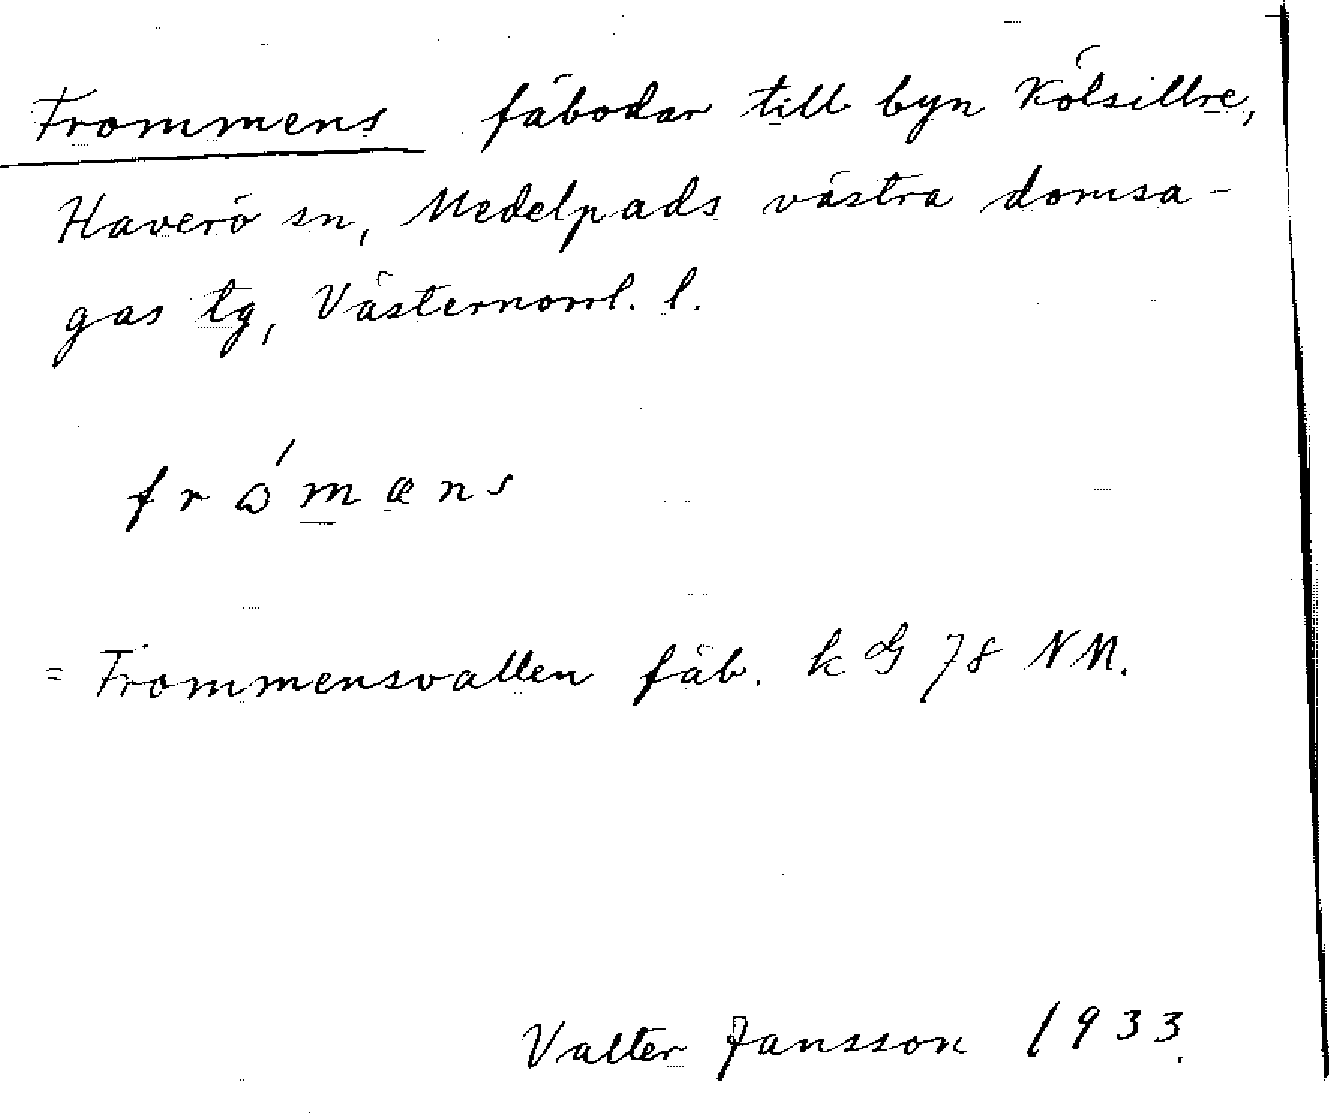 Frommens fäbodar till byn Kölsillre,
Haverö sn, Medelpads västra domsa-
gas tg, Västernorrl. l.
= Frommensvallen fäb. k G 78 NM.
Valter Jansson 1933.